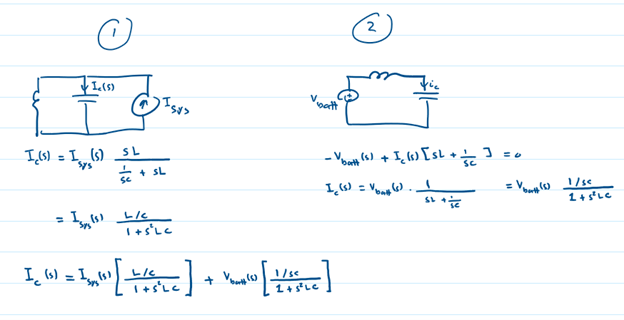 1
2
I_c(s)
I_sys
V_batt
i_c
I_c(s) = I_sys(s) \frac{sL}{\frac{1}{sc} + sL}
= I_sys(s) \frac{L/c}{1 + s^2 L c}
-V_batt(s) + I_c(s) [sL + \frac{1}{sc}] = 0
I_c(s) = V_batt(s) \cdot \frac{1}{sL + \frac{1}{sc}} = V_batt(s) \frac{1/sc}{1 + s^2 L c}
I_c(s) = I_sys(s) [\frac{L/c}{1 + s^2 L c}] + V_batt(s) [\frac{1/sc}{1 + s^2 L c}]